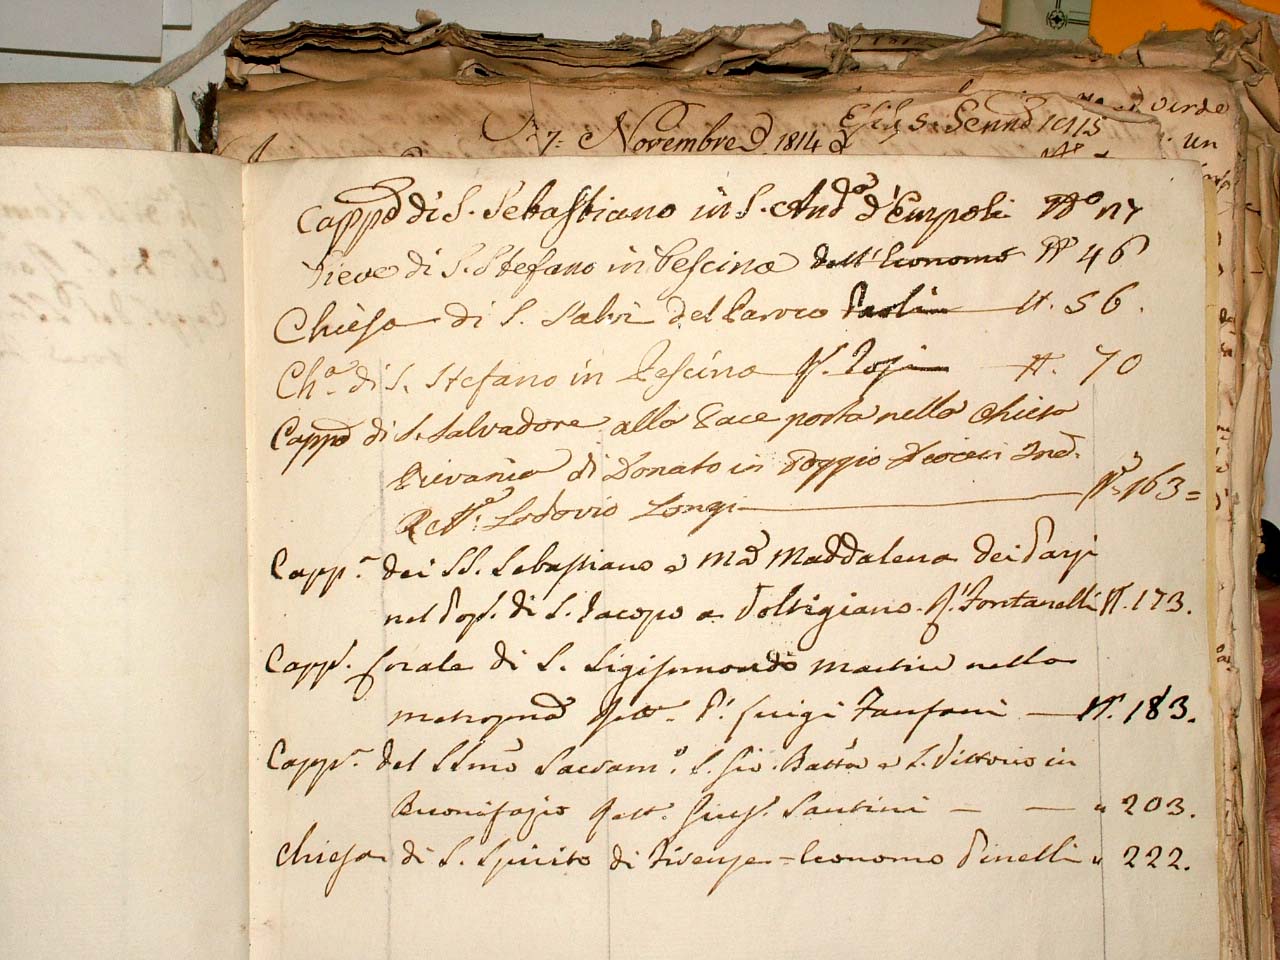 7: Novembre 1814
Cappa di S. Sebastiano in S. Anda d'Empoli No 17
Pieve di S. Stefano in Pescina dell'Economo No 46
Chiesa di S. Salvi del Paroco Paolini N. 56.
Cha. di S. Stefano in Pescina N. 70
Cappa di S. Salvadore alla Pace posta nella Chiesa
Pievania di Donato in Poggio Diocesi
Lodovio Longi No 163=
Capp. dei SS. Sebastiano e Ma Maddalena dei
nel Pop. di S. Jacopo a Voltigiano. Fontanelli N. 173.
Capp. corale di S. Sigismondo Martire nella
Rett. P. Luigi Fanfani — N. 183.
Capp. del SSmo Sacram.o S. Gio Batta e S. Vittorio in
Bonifazio Rett. Gius. Santini — — " 203.
Chiesa di S. Spirito di Firenze = Economo Pinelli " 222.